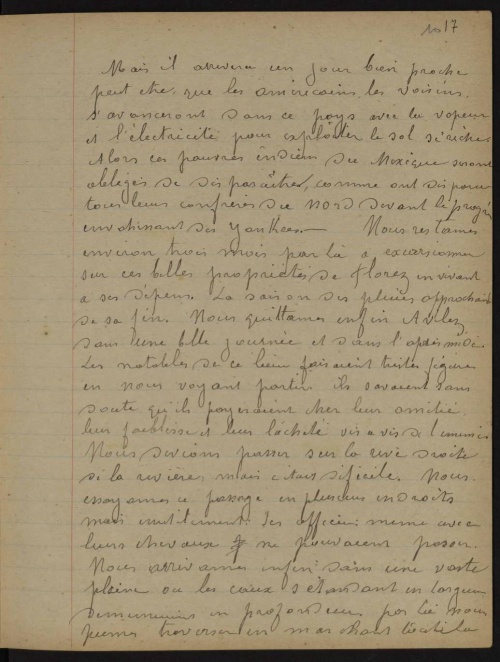 17
Mais il arrivera un jour bien proche
peut etre, que les américains, les voisins,
s'avanceront dans ce pays avec la vapeur
et l'électricité pour exploiter le sol si riche
Alors ces pauvres indiens du Mexique seront
obligés de disparaître, comme ont disparu
tous leurs confrères du nord devant le progrès
envahissant des Yonkees.— Nous restames
environ trois mois par là a excursionner
sur ces belles propriétés de Florez en vivant
a ses dépens. La saison des pluies approchait
de sa fin. Nous quittames enfin Avilez
dans une belle journée et dans l'après midi.
Les notables de ce lieu faisaient tristes figures
en nous voyant partir ils savaient sans
doute qu'ils payeraient cher leur amitié
leur faiblesse et leur lâcheté vis a vis de l'ennemi
Nous devions passer sur la rive droite
de la rivière, mais c'était dificile. Nous
essayames ce passage en plusieurs endroits
mais inutilement. les officiers meme avec
leurs chevaux ne pouvaient passer.
Nous arrivames enfin dans une vaste
plaine ou les eaux s'étendant en largeur
en profondeur par là nous
pumes traverser en marchant